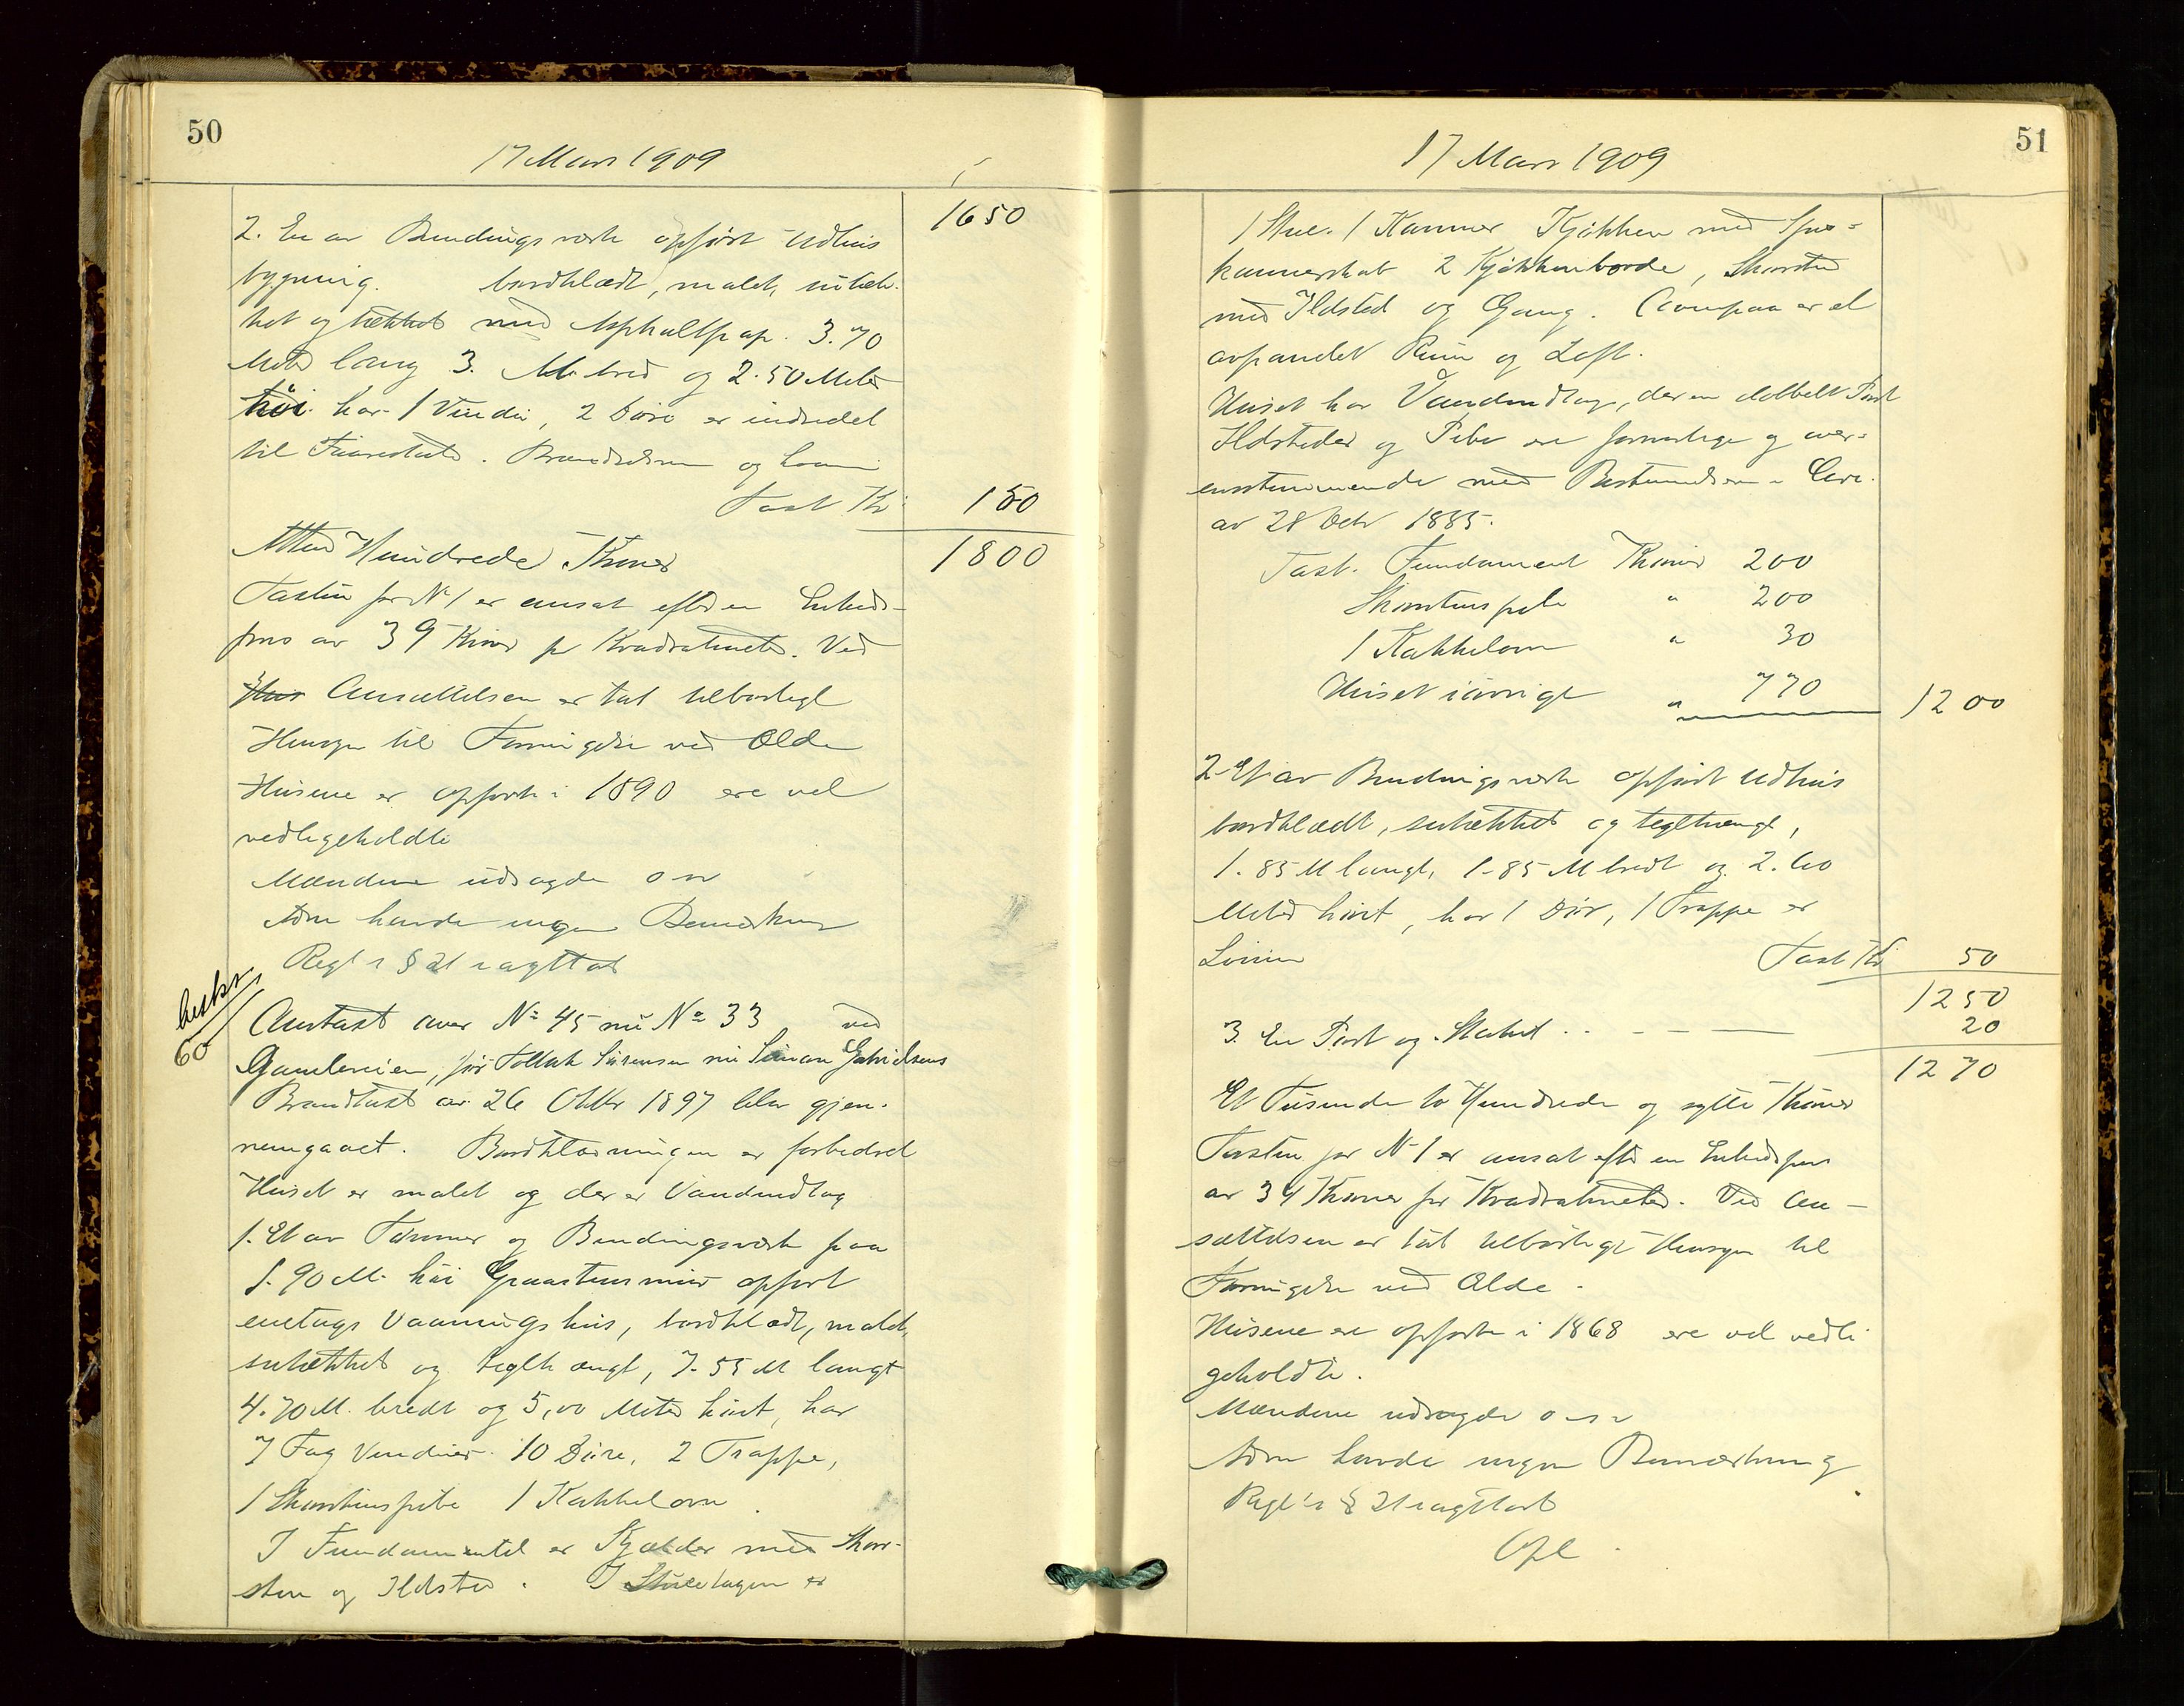 50
17 Mars 1909
1650
2. En av Bindingsverk opført Udhus
bygning. bordklædt, malet, sutæk-
ket og tækket med Asphaltpap. 3.70
Meter lang 3. M. bred og 2.50 Meter
høi. har 1 Vindu, 2 Døre er indredet
til
Taxt Kr. 150
Atten Hundrede Kroner 1800
Taxten for N 1 er ansat efter en Enheds-
pris av 39 Kroner pr Kvadratmeter. Ved
Ansættelsen er tat tilbørligt
Hensyn til Forringelse ved Ælde
Husene er opførte i 1890 ere vel
vedligeholdte
Mændene udsagde osv
havde ingen Bemerkning
Regl's § 21 iagttat
60
Omtaxt over No 45 nu No 33 ved
Gamleveien, før Tollak Sørensen nu Simon Gabrielsens
Brandtaxt av 26 Oktbr 1897 blev gjen-
nemgaaet. Bordklædningen er forbedret
Huset er malet og der er Vandindlæg
1. Et av Tømmer og Bindingsverk paa
1.90 M. høi Graastensmur opført
enetages Vaaningshus, bordklædt, malet,
sutækket og teglhængt, 7.55 M langt
4.70 M. bredt og 5,00 Meter høit, har
7 Fag Vinduer. 10 Døre, 2 Trappe,
1 Skorstenspibe 1 Kakkelovn.
I Fundamentet er Kjælder med Skor-
sten og Ildsted. I Stueetagen er
51
17 Mars 1909
1 Stue. 1 Kammer Kjøkken med Spis-
kammerskab 2 Kjøkkenborde, Skorsten
med Ildsted og Gang. Ovenpaa er et
avpanelet Rum og Loft.
Huset har Vandindlæg, der en dobbelt Port
Ildsteder og Pibe ere forsvarlige og over-
ensstemmende med Bestemmelsen i Circ.
av 28 Octr 1885.
Taxt. Fundament Kroner 200
Skorstenspibe " 200
1 Kakkelovn " 30
Huset iøvrigt " 770
1200
2. Et av Bindingsverk opført Udhus
bordklædt, sutækket og teglhængt,
1.85 M langt, 1.85 M bredt og 2.60
Meter høit, har 1 Dør, 1 Trappe er
Taxt Kr 50
1250
3. En Port og Stakit 20
1270
Et Tusinde to Hundrede og sytti Kroner
Taxten for N 1 er ansat efter en Enhedspris
av 34 Kroner pr Kvadratmeter. Ved An-
sættelsen er tat tilbørligt Hensyn til
Forringelse ved Ælde.
Husene ere opførte i 1868 ere vel vedli
geholdte.
Mændene udsagde osv
havde ingen Bemærkning
Regl's § 21 iagttat